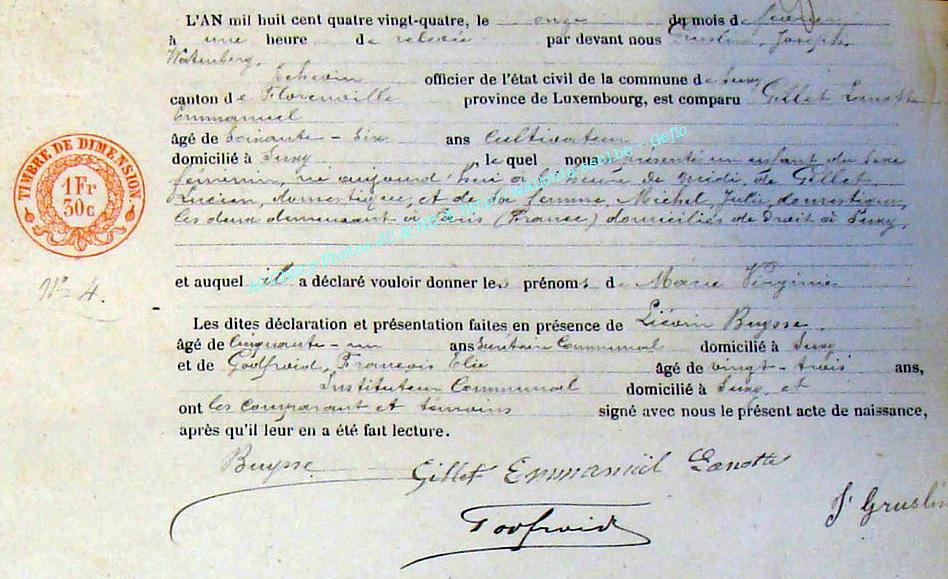 L'AN mil huit cent quatre vingt-quatre, le onze du mois de
à une heure de relevée par devant nous Gruslin, Joseph,
Watenberg,
Echevin officier de l'état civil de la commune de Suxy
canton de Florenville province de Luxembourg, est comparu Gillet Lanotte
Emmanuel
âgé de Soixante-Six ans Cultivateur
domicilié à Suxy, le quel nous présenté un enfant du Sexe
féminin, né aujourd'hui à l'heure de midi, de Gillet,
Lucien, domestique, et de sa femme, Michel, Julie, domestique,
les deux demeurant à Paris (France) domiciliés de droit à Suxy,
TIMBRE DE DIMENSION.
1 Fr
30 c
N° 4.
et auquel il a déclaré vouloir donner les prénoms de Marie Virginie
Les dites déclaration et présentation faites en présence de Liévin Buysse,
âgé de Cinquante-un ans Secrétaire Communal domicilié à Suxy
et de Godfroid, François Elie âgé de vingt-trois ans,
Instituteur Communal domicilié à Suxy, et
ont les comparant et témoins signé avec nous le présent acte de naissance,
après qu'il leur en a été fait lecture.
Buysse
Gillet Emmanuël Lanotte
Godfroid
J Gruslin